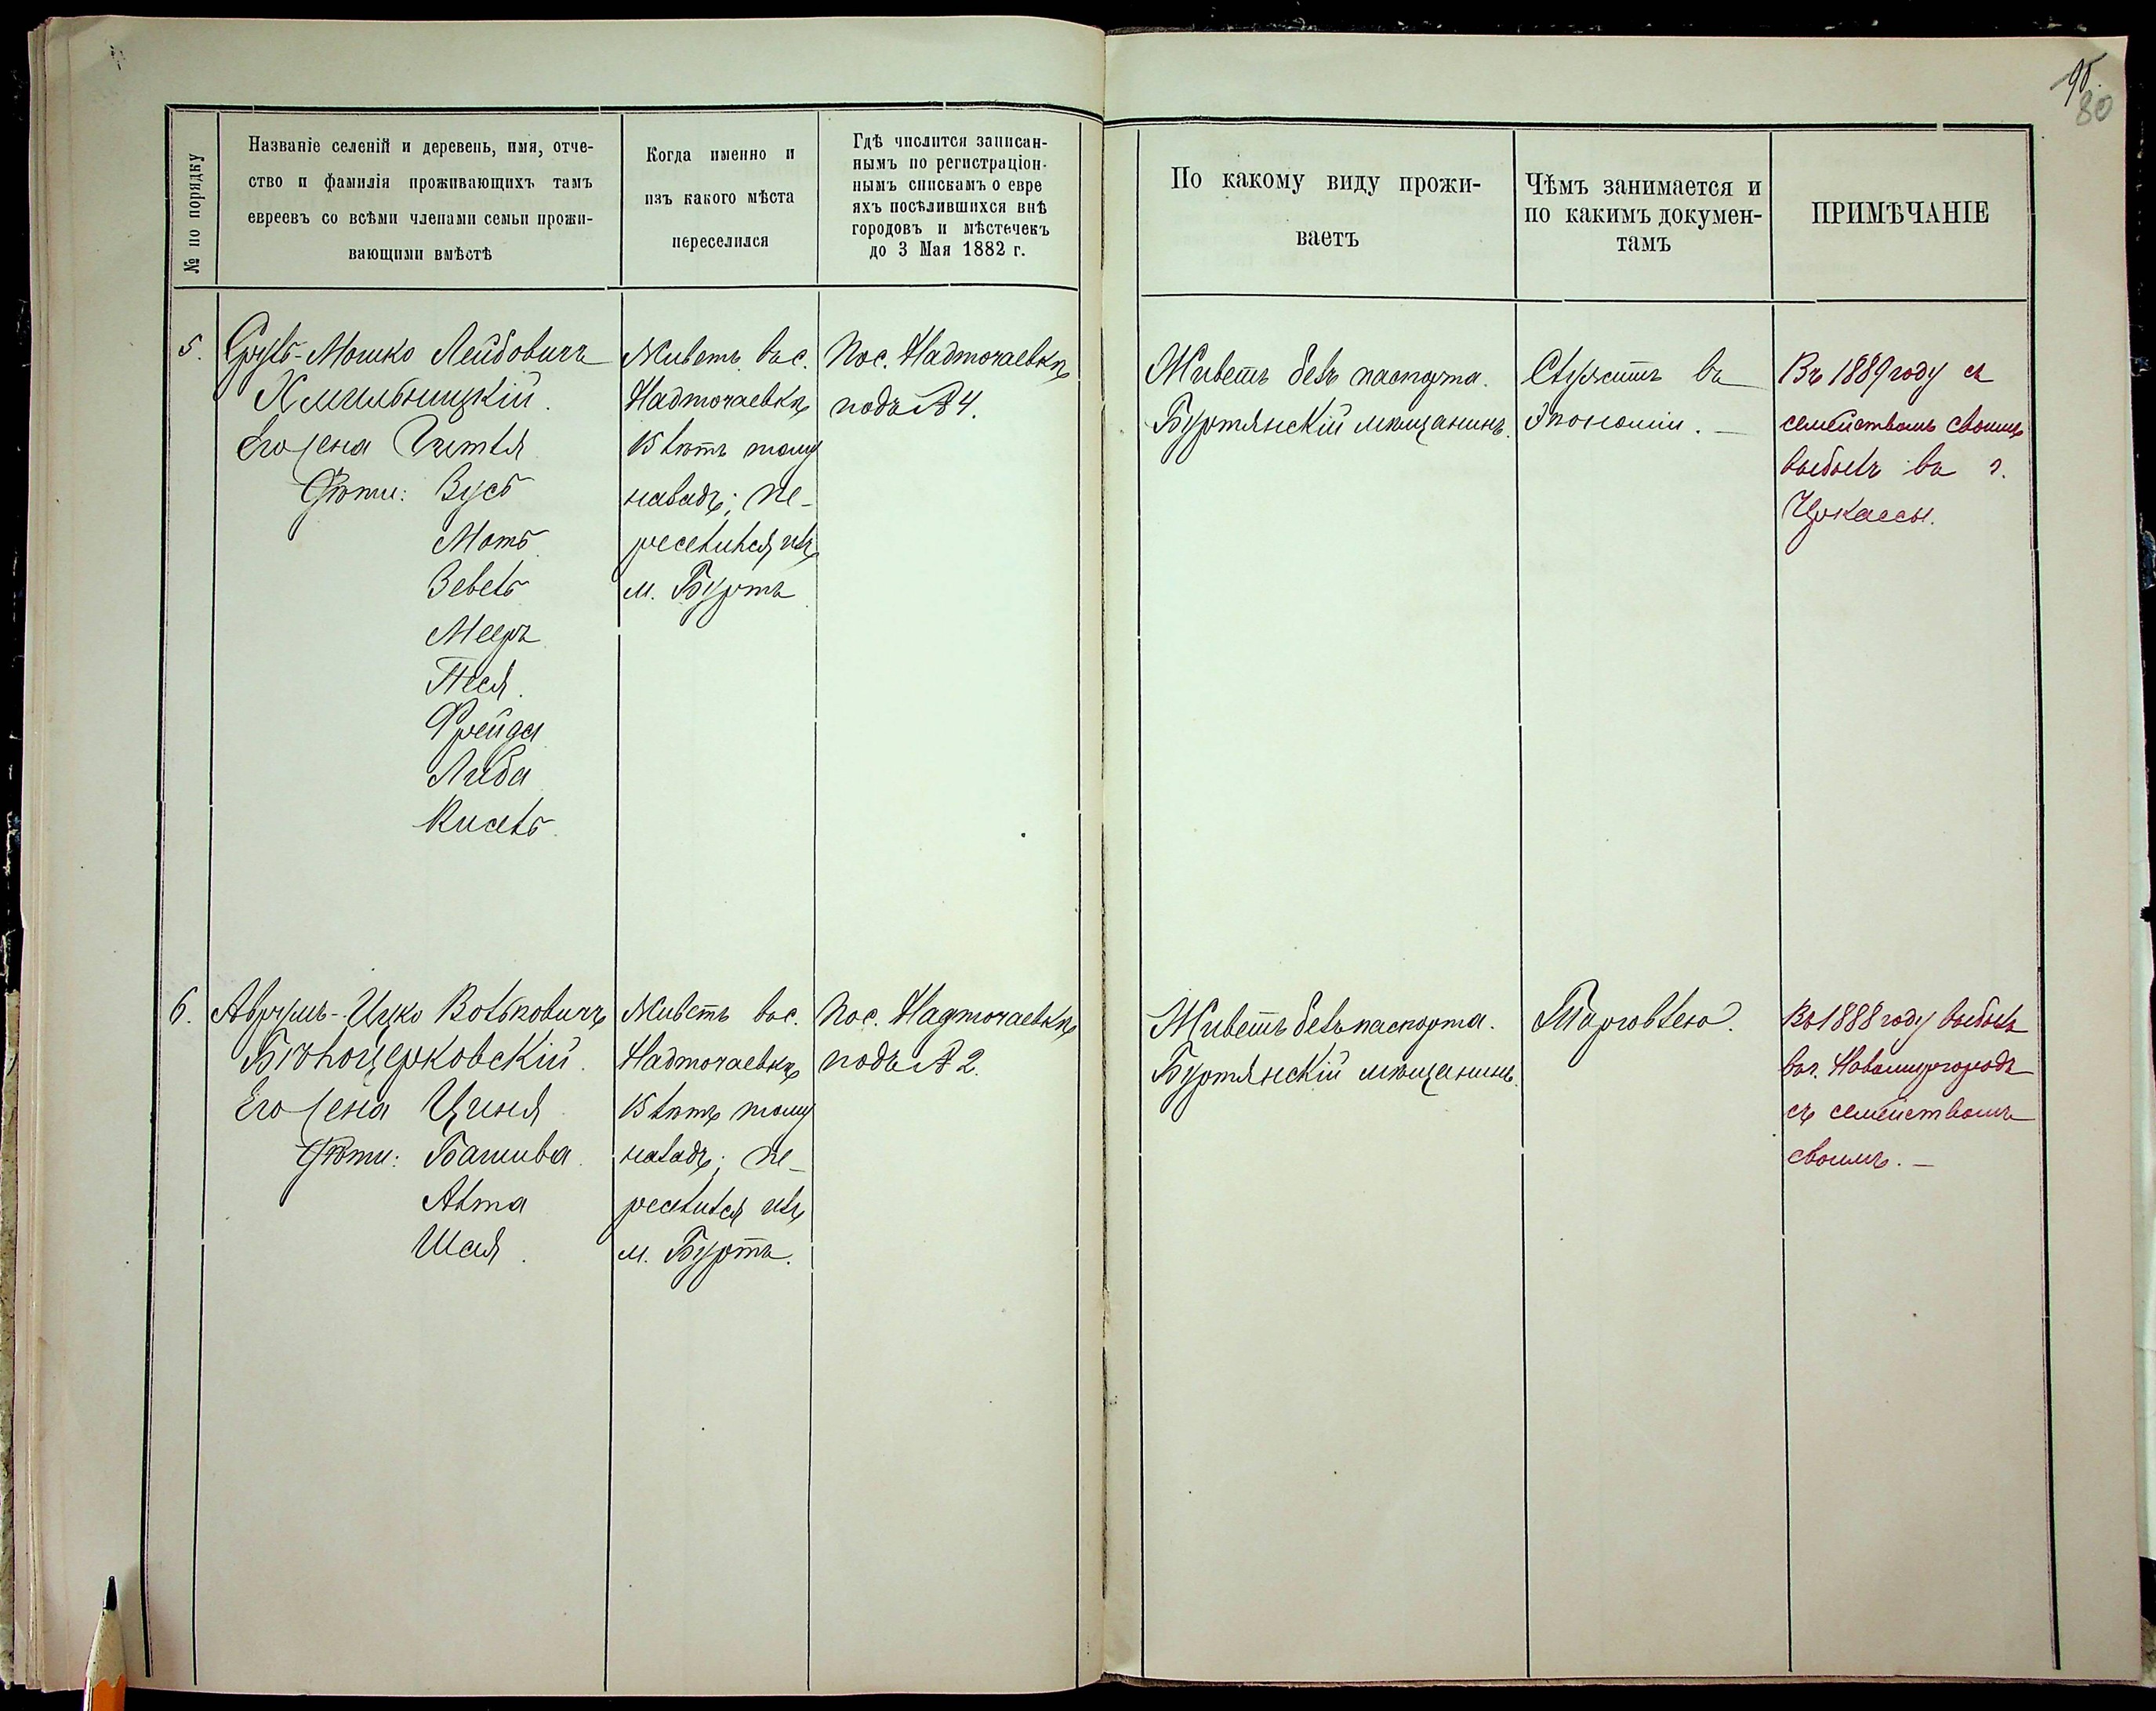 95.
80
№ по порядку
Названіе селеній и деревень, имя, отче-
ство и фамилія проживающихъ тамъ
евреевъ со всѣми членами семьи прожи-
вающими вмѣстѣ
Когда именно и
изъ какого мѣста
переселился
Гдѣ числится записан-
нымъ по регистраціон-
нымъ спискамъ о евре
яхъ посѣлившихся внѣ
городовъ и мѣстечекъ
до 3 Мая 1882 г.
По какому виду прожи-
ваетъ
Чѣмъ занимается и
по какимъ докумен-
тамъ
ПРИМѢЧАНІЕ
5.
Сруль-Мошко Лейбовичъ
Хмильницкій.
Его жена Гитля
Дѣти: Зусь
Моть
Зевель
Мееръ
Песя.
Фрейда
Либа
Кисель.
Живетъ въ с.
Надточаевкѣ
15 лѣтъ тому
назадъ; пе-
реселился изъ
м. Буртъ
По с. Надточаевкѣ
подъ № 4.
Живетъ безъ паспорта.
Буртянскій мѣщанинъ.
Служитъ въ
Экономіи. —
Въ 1889 году съ
семействомъ своимъ
выбылъ въ г.
Черкассы.
6.
Аврумъ-Ицко Вольковичъ
Бѣлоцерковскій.
Его жена Циня
Дѣти: Башива.
Алта
Шая.
Живетъ въ с.
Надточаевкѣ
15 лѣтъ тому
назадъ; пе-
реселился изъ
м. Буртъ.
По с. Надточаевкѣ
подъ № 2.
Живетъ безъ паспорта.
Буртянскій мѣщанинъ.
Торговлею.
Въ 1888 году выбылъ
въ г. Новомиргородъ
съ семействомъ
своимъ. —